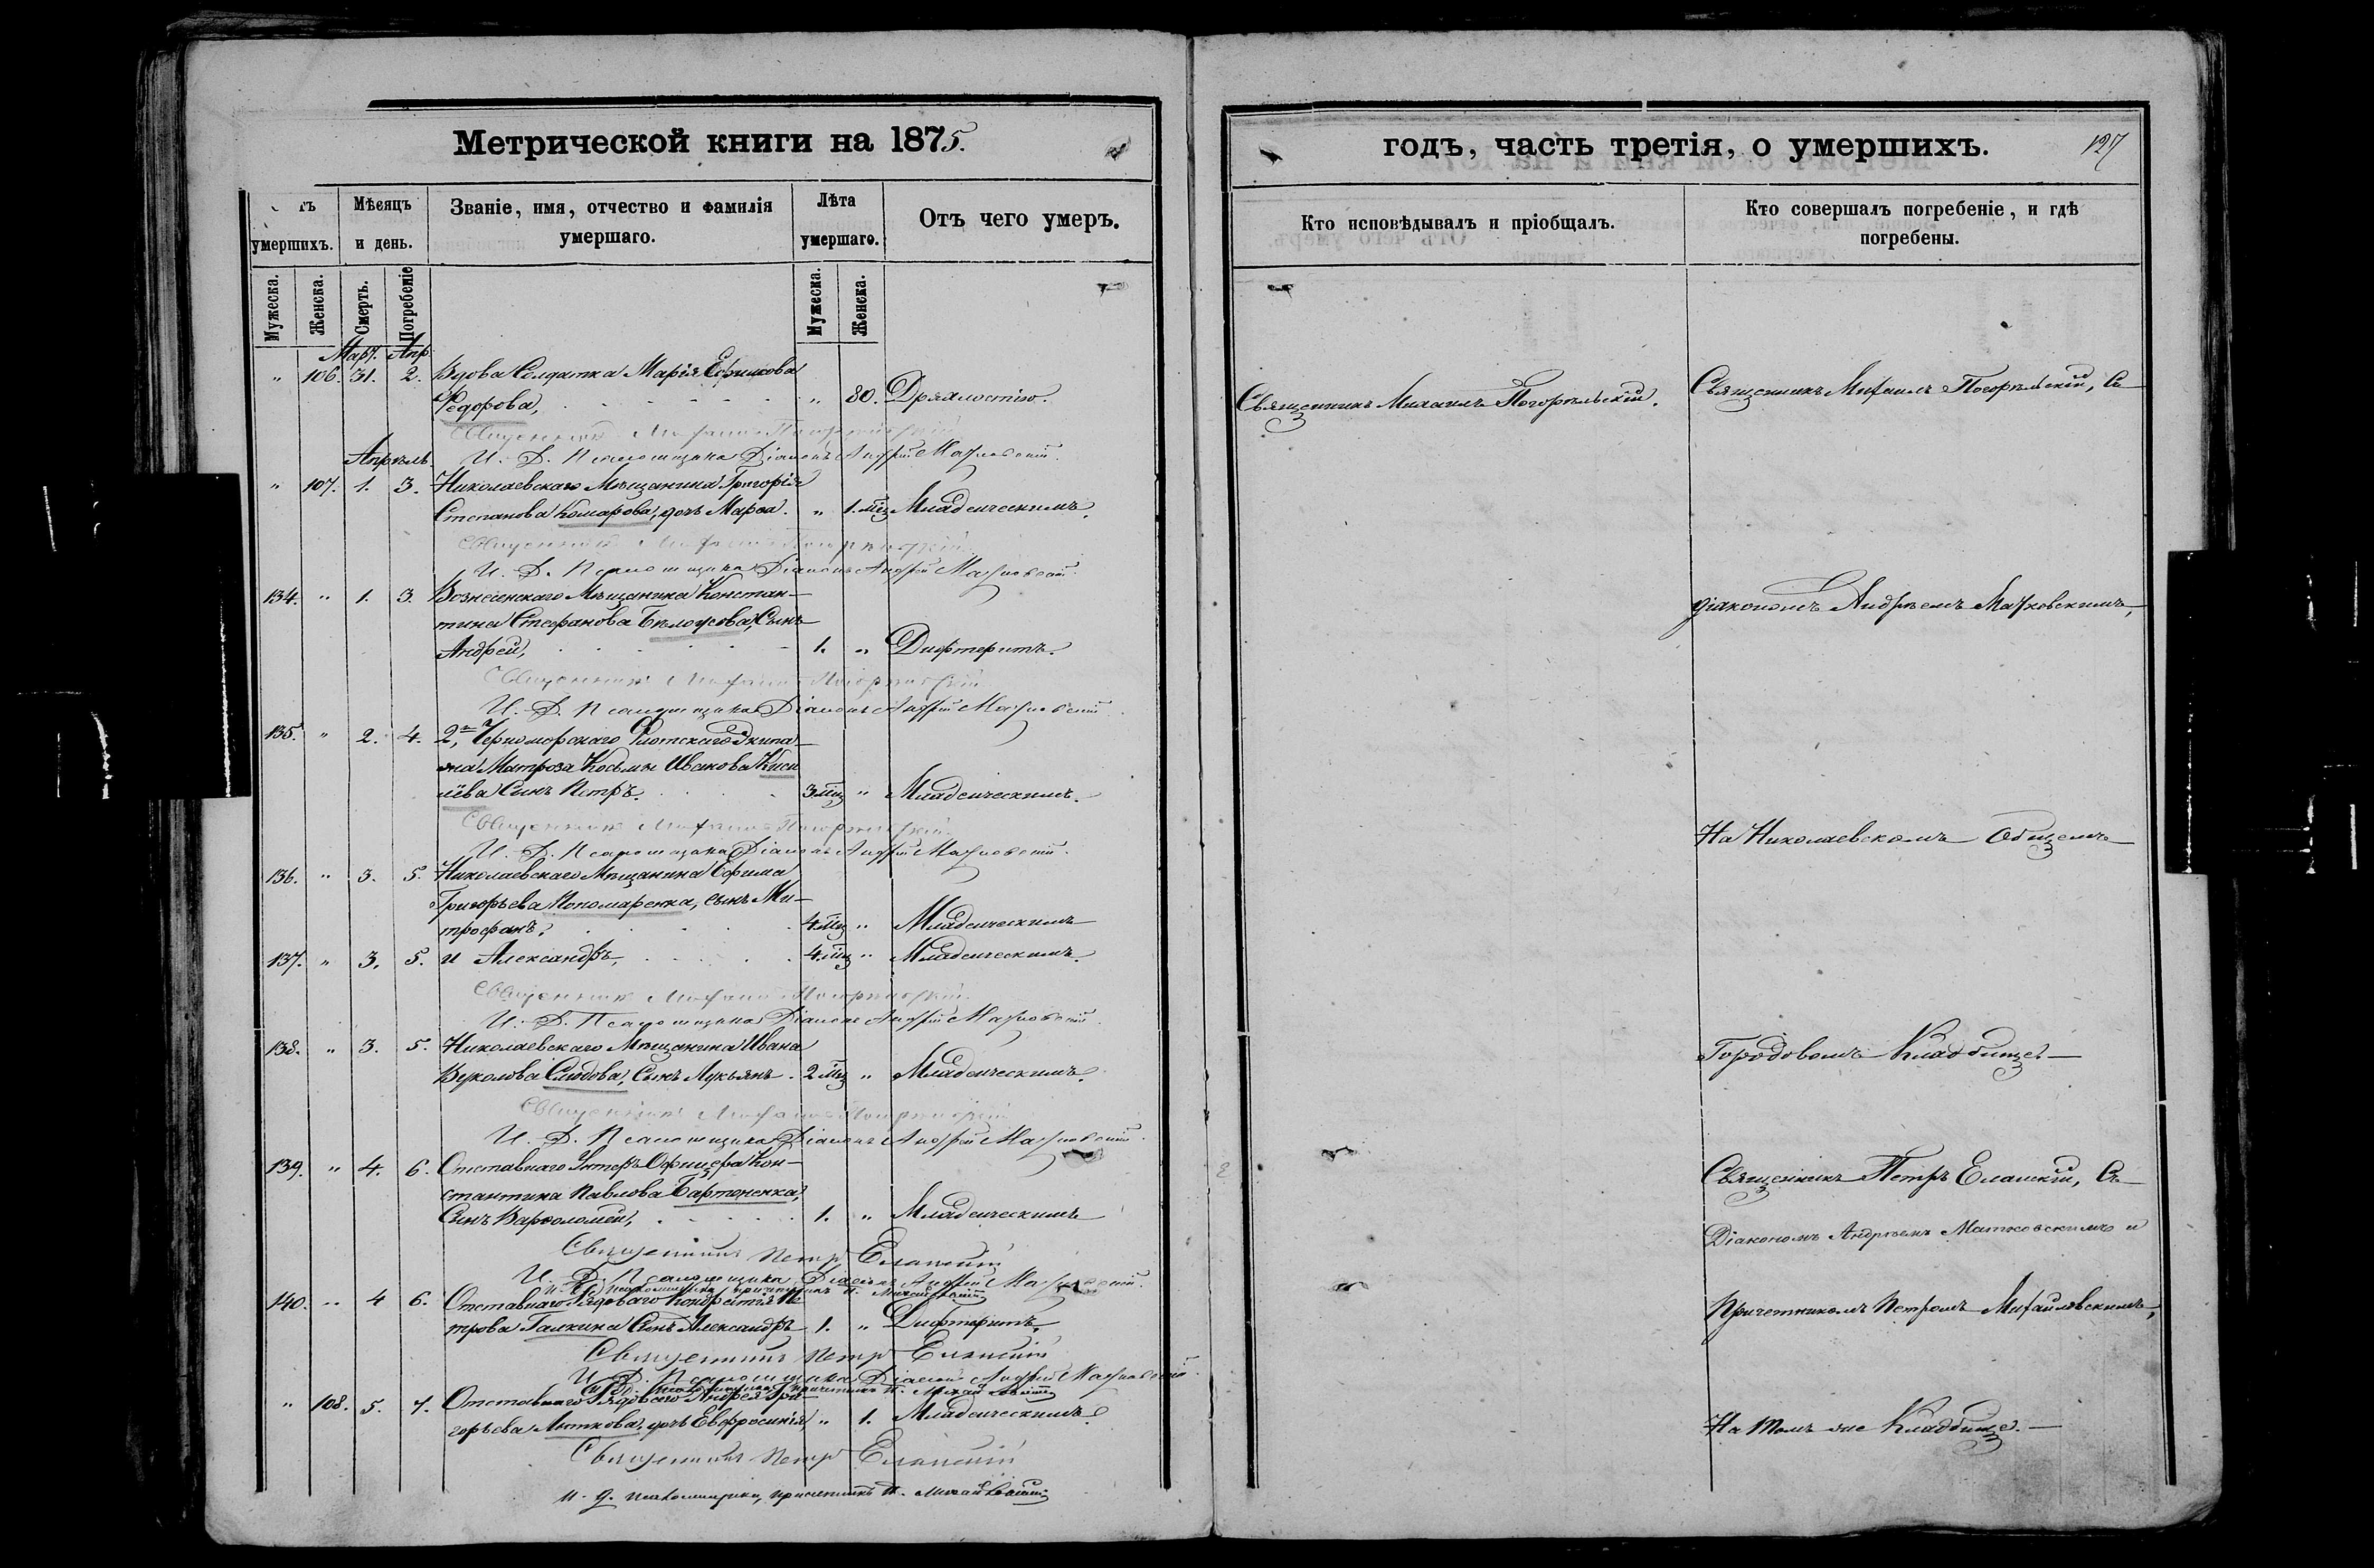 Метрической книги на 1875.
умершихъ.
Мѣсяцъ и день.
Званіе, имя, отчество и фамилія умершаго.
Лѣта умершаго.
Отъ чего умеръ.
Мужеска.
Женска.
Смерть.
Погребеніе
Мужеска.
Женска.
Март. Апр.
" 106. 31. 2. Вдова Солдатка Марія Ефимова
Федорова, " 80. Дряхлостію.
Священникъ Михаилъ Погорѣльскій
Апрѣль. И. Д. Псаломщика Діаконъ Андрей Матковскій.
" 107. 1. 3. Николаевскаго Мѣщанина Григорія
Степанова Комарова, дочь Марѳа. " 1. мц Младенческимъ.
Священникъ Михаилъ Погорѣльскій
И. Д. Псаломщика Діаконъ Андрей Матковскій.
134. " 1. 3. Вознесенскаго Мѣщанина Констан-
тина Стефанова Бѣлоусова, Сынъ
Андрей, 1. " Дифтеритъ.
Священникъ Михаилъ Погорѣльскій
И. Д. Псаломщика Діаконъ Андрей Матковскій.
135. " 2. 4. 2го, Черноморскаго Флотскаго Экипа-
жа Матроза Косьмы Иванова Кисе
лёва Сынъ Петръ. 3 мц " Младенческимъ.
Священникъ Михаилъ Погорѣльскій
И. Д. Псаломщика Діаконъ Андрей Матковскій.
136. " 3. 5. Николаевскаго Мѣщанина Ефима
Григорьева Пономаренка, сынъ Ми-
трофанъ, 4 мц " Младенческимъ
137. " 3. 5. и Александръ, 4. мц " Младенческимъ.
Священникъ Михаилъ Погорѣльскій
И. Д. Псаломщика Діаконъ Андрей Матковскій.
138. " 3. 5. Николаевскаго Мѣщанина Ивана
Слюдова, Сынъ Лукьянъ. 2 мц " Младенческимъ.
Священникъ Михаилъ Погорѣльскій
И. Д. Псаломщика Діаконъ Андрей Матковскій.
139. " 4. 6. Отставнаго Унтеръ Офицера Кон-
стантина Павлова Бартоненка,
Сынъ Варѳоломей, 1. " Младенческимъ
Священникъ Петръ Еланскій
И. Д. Псаломщика Діаконъ Андрей Матковскій.
И. Д. псаломщика, причетникъ П. Михайловскій
140. " 4 6. Отставнаго Рядоваго Кондратія Пе
трова Галкина Сынъ Александръ 1. " Дифтеритъ.
Священникъ Петръ Еланскій
И. Д. Псаломщика Діаконъ Андрей Матковскій.
И. Д. псаломщика, причетникъ П. Михайловскій
" 108. 5. 7. Отставнаго Рядоваго Андрея Гри-
горьева Литкова, дочь Евфросинія, " 1. Младенческимъ.
Священникъ Петръ Еланскій
И. д. псаломщика, причетникъ П. Михайловскій
годъ, часть третія, о умершихъ.
127
Кто исповѣдывалъ и пріобщалъ.
Кто совершалъ погребеніе, и гдѣ погребены.
Священникъ Михаилъ Погорѣльскій.
Священникъ Михаилъ Погорѣльскій, Съ
діакономъ Андреемъ Матковскимъ,
На Николаевскомъ Общемъ
Городовомъ Кладбищѣ.
Священникъ Петръ Еланскій, Съ
Діакономъ Андреемъ Матковскимъ и
Причетникомъ Петромъ Михайловскимъ,
На томъ же Кладбищѣ.